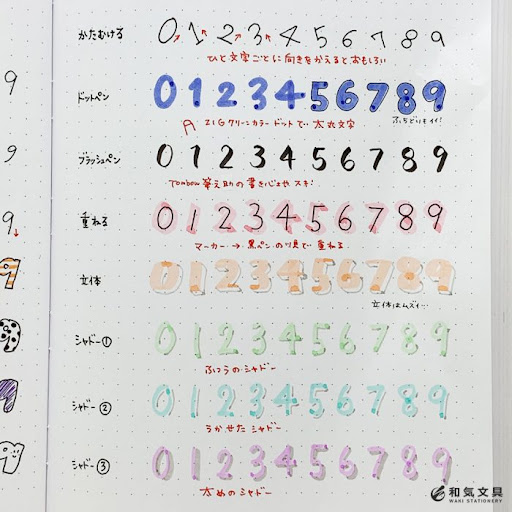 9
9
9
9
9
9
9
かたむける 0 1 2 3 4 5 6 7 8 9
ひと文字ごとに向きをかえるとおもしろい
ドットペン 0 1 2 3 4 5 6 7 8 9
ZIGクリーンカラードットで… 太丸文字
ふちどりもイイ!
ブラッシュペン 0 1 2 3 4 5 6 7 8 9
Tombow 筆之助の書きバエがスキ!
重ねる 0 1 2 3 4 5 6 7 8 9
マーカー → 黒ペンの順で重ねる
立体 0 1 2 3 4 5 6 7 8 9
立体はムズイ…
シャドー① 0 1 2 3 4 5 6 7 8 9
ふつうのシャドー
シャドー② 0 1 2 3 4 5 6 7 8 9
うかせたシャドー
シャドー③ 0 1 2 3 4 5 6 7 8 9
太めのシャドー
和気文具
WAKI STATIONERY